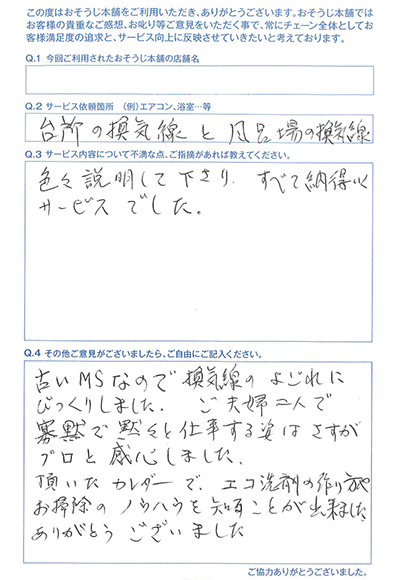 この度はおそうじ本舗をご利用いただき、ありがとうございます。おそうじ本舗では
お客様の貴重なご感想、お叱り等ご意見をいただく事で、常にチェーン全体としてお
客様満足度の追求と、サービス向上に反映させていきたいと考えております。
Q.1 今回ご利用されたおそうじ本舗の店舗名
Q.2 サービス依頼箇所 (例)エアコン、浴室…等
台所の換気線と風呂場の換気線
Q.3 サービス内容について不満な点、ご指摘があれば教えてください。
色々説明して下さり、すべて納得いく
サービスでした。
Q.4 その他ご意見がございましたら、ご自由にご記入ください。
古いMSなので換気線のよごれに
びっくりしました。ご夫婦二人で
寡黙で黙々と仕事する姿はさすが
プロと感心しました。
頂いたカレダーで、エコ洗剤の作り方や
お掃除のノウハウを知ることが出来ました
ありがとうございました
ご協力ありがとうございました。